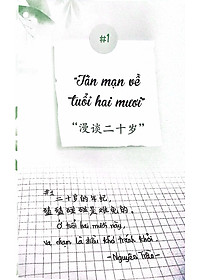 #1
"Tản mạn về
tuổi hai mươi"
"漫谈二十岁"
#1
二十岁的年纪,
磕磕碰碰是难免的。
Ở tuổi hai mươi này,
va chạm là điều khó tránh khỏi.
-Nguyên Trần-